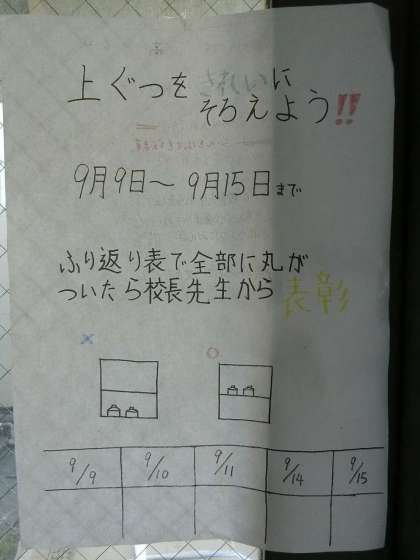 上ぐつをきれいに
そろえよう!!
9月9日〜9月15日まで
ふり返り表で全部に丸が
ついたら校長先生から表彰
× ○
9/9 9/10 9/11 9/14 9/15